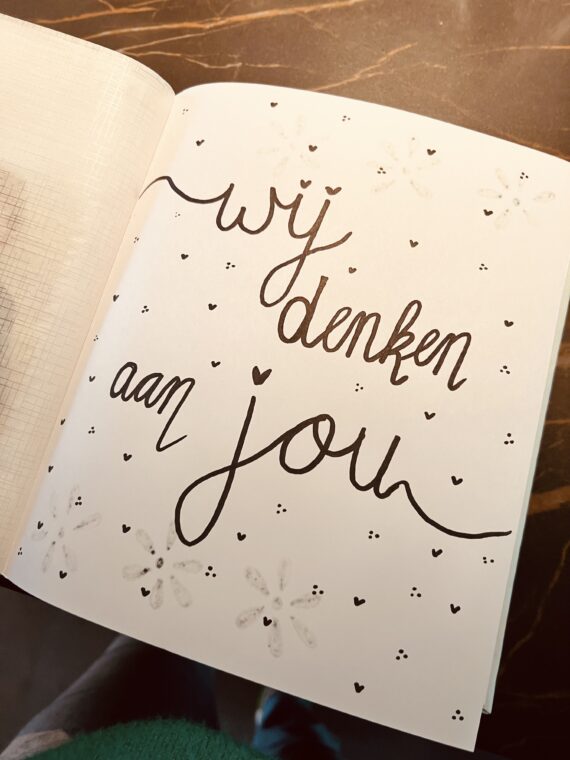 wij
denken
aan jou